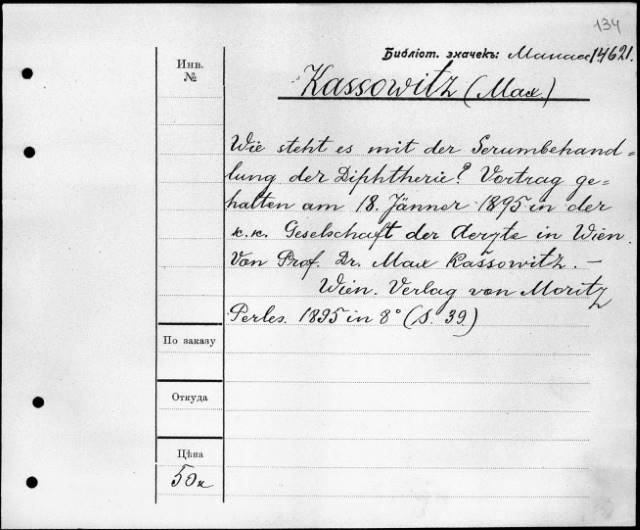 134
Библіот. значекъ: Манасс 14621.
Инв.
№
Kassowitz (Max.)
Wie steht es mit der Serumbehand=
lung der Diphtherie? Vortrag ge=
halten am 18. Jänner 1895 in der
k.k. Geselschaft der Aerzte in Wien.
Von Prof. Dr. Max Kassowitz. —
Wien. Verlag von Moritz
Perles. 1895 in 8° (S. 39.)
По заказу
Откуда
Цѣна
50к